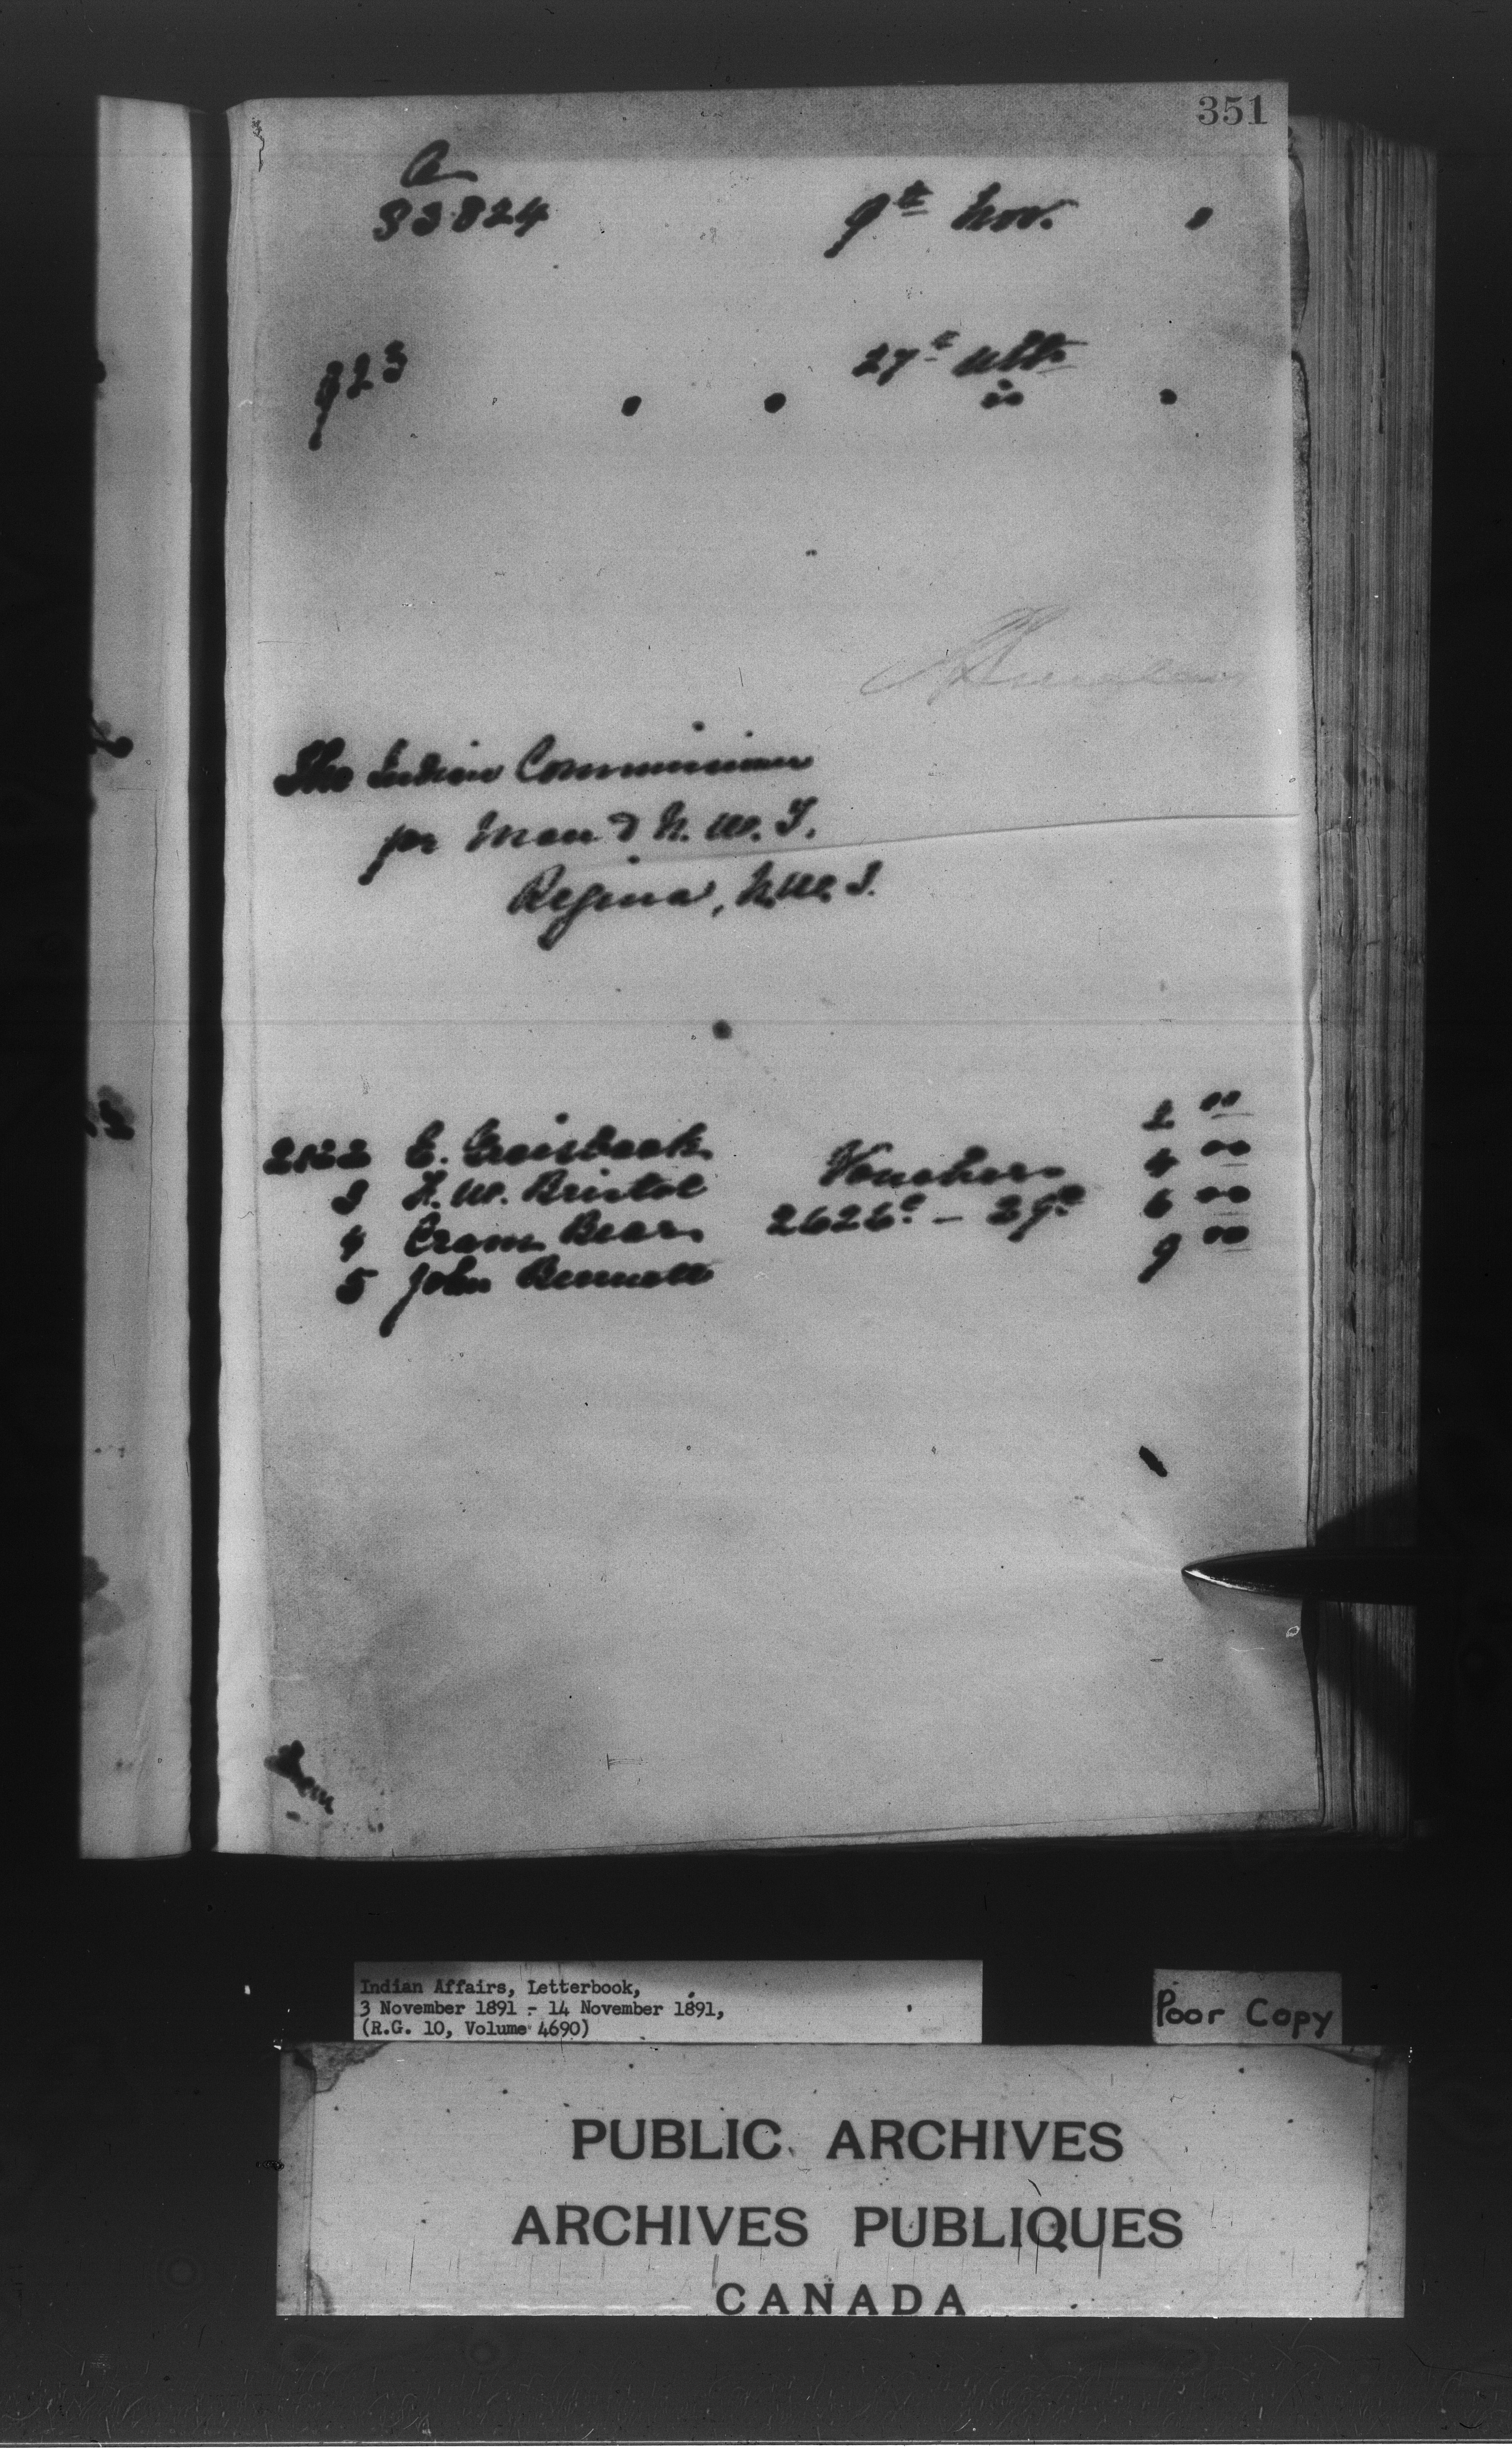 351
a
33824 9th Nov. "
923 " " 27th ulto "
The Indian Commissioner
for Man & N. W. T.
Regina, N.W.T.
2 00
2122 E. Vouchers 4 00
3 H. W. Bristol 2626a - 29a 6 00
4 Bear 9 00
5 John Bennett
Indian Affairs, Letterbook,
3 November 1891 - 14 November 1891,
(R.G. 10, Volume 4690)
Poor Copy
PUBLIC ARCHIVES
ARCHIVES PUBLIQUES
CANADA